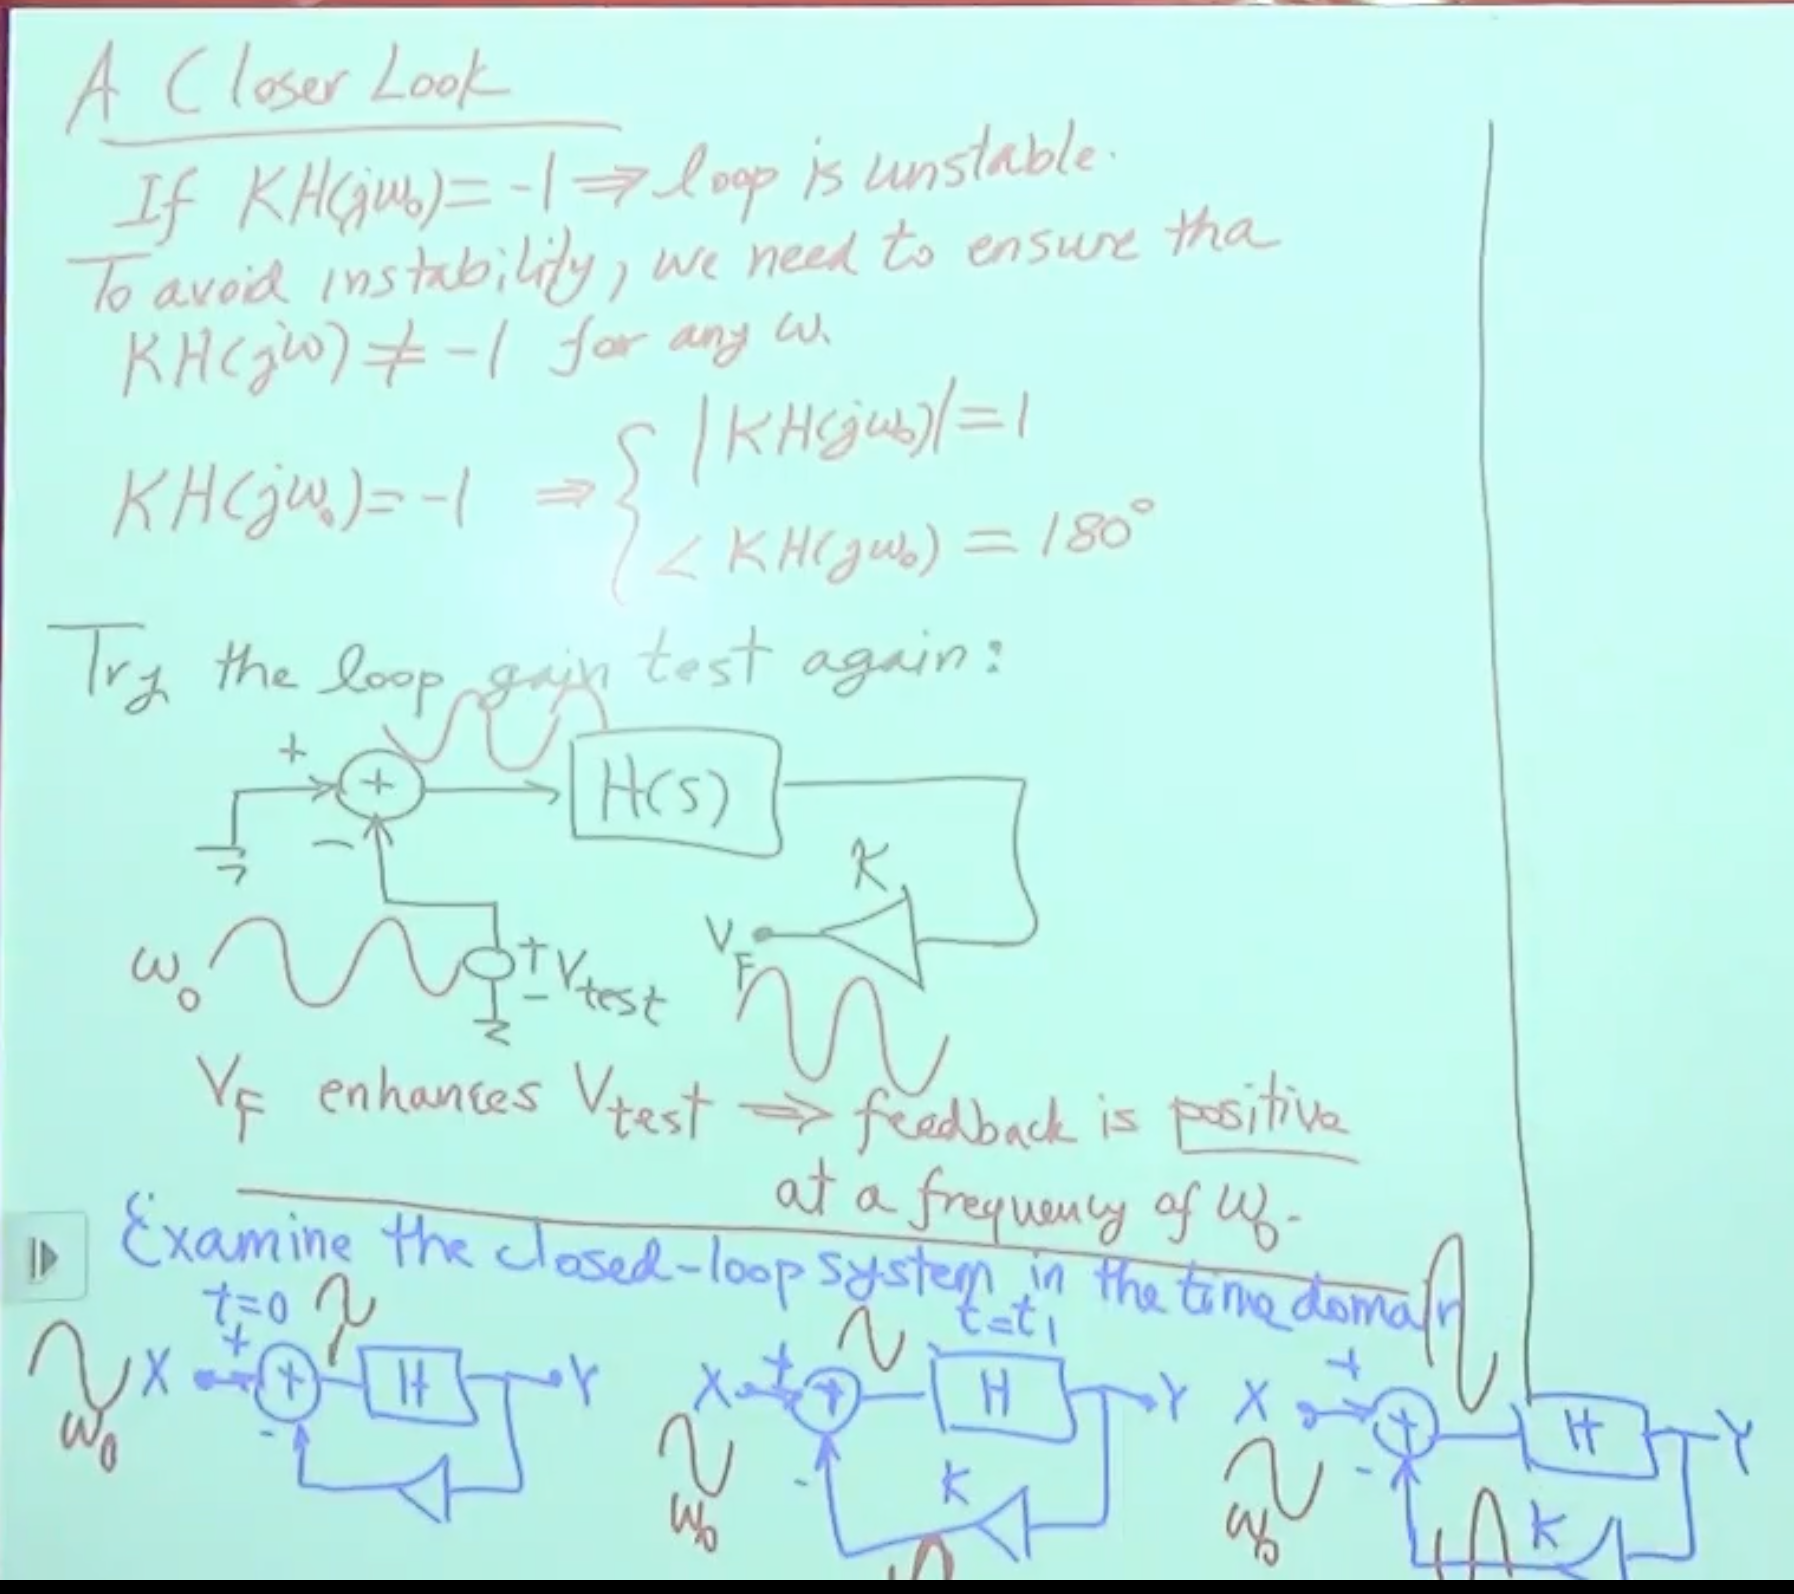 A Closer Look
If KH(jω₀) = -1 ⇒ loop is unstable.
To avoid instability, we need to ensure tha
KH(jω) ≠ -1 for any ω.
KH(jω₀) = -1 ⇒ { |KH(jω₀)| = 1
∠KH(jω₀) = 180°
Try the loop gain test again:
+ + H(s)
-
K
V_F
ω₀ + V_test
-
V_F enhances V_test ⇒ feedback is positive
at a frequency of ω₀.
Examine the closed-loop system in the time domain
t=0 t=t₁
X + + H Y X + + H Y X + + H Y
- - -
ω₀ ω₀ K ω₀ K